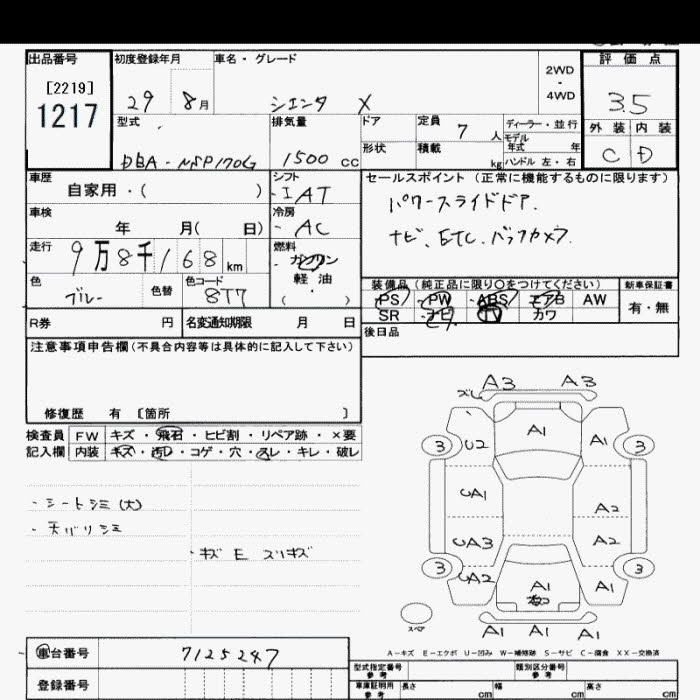 出品番号
[2219]
1217
初度登録年月
29 8月
車名・グレード
シエンタ X
2WD
-
4WD
評価点
3.5
外装 内装
C D
型式
DBA-NSP170G
排気量
1500 cc
ドア
定員 7 人
ディーラー・並行
モデル
年式 年
形状
積載 kg
ハンドル 左・右
車歴
自家用・( )
シフト
IAT
車検
年 月( 日)
冷房
AC
走行
9万8千168 km
燃料
ガソリン
軽油
( )
色
ブルー
色替
色コード
8T7
R券 円
名変通知期限 月 日
セールスポイント(正常に機能するものに限ります)
パワースライドドア.
ナビ、ETC.バックカメラ.
装備品(純正品に限り○をつけてください)
PS PW ABS エアB AW
SR ナビ TV カワ
新車保証書
有・無
後日品
注意事項申告欄(不具合内容等は具体的に記入して下さい)
修復歴 有 〔箇所 〕
検査員 FW キズ・飛石・ヒビ割・リペア跡・×要
記入欄 内装 キズ・汚レ・コゲ・穴・スレ・キレ・破レ
・シートシミ(大)
・天バリシミ
・キズ E スリキズ
ズレ A3 A3
A1
3 U2 A1 3
UA1
A2
UA3 A2
3 UA2 A1 A1 3
スペア
A1 A1 A1
A-キズ E-エクボ U-凹み W-補修跡 S-サビ C-腐食 XX-交換済
車台番号 7125247
登録番号
型式指定番号
参考
類別区分番号
参考
車庫証明用
参考
長さ cm
幅 cm
高さ cm